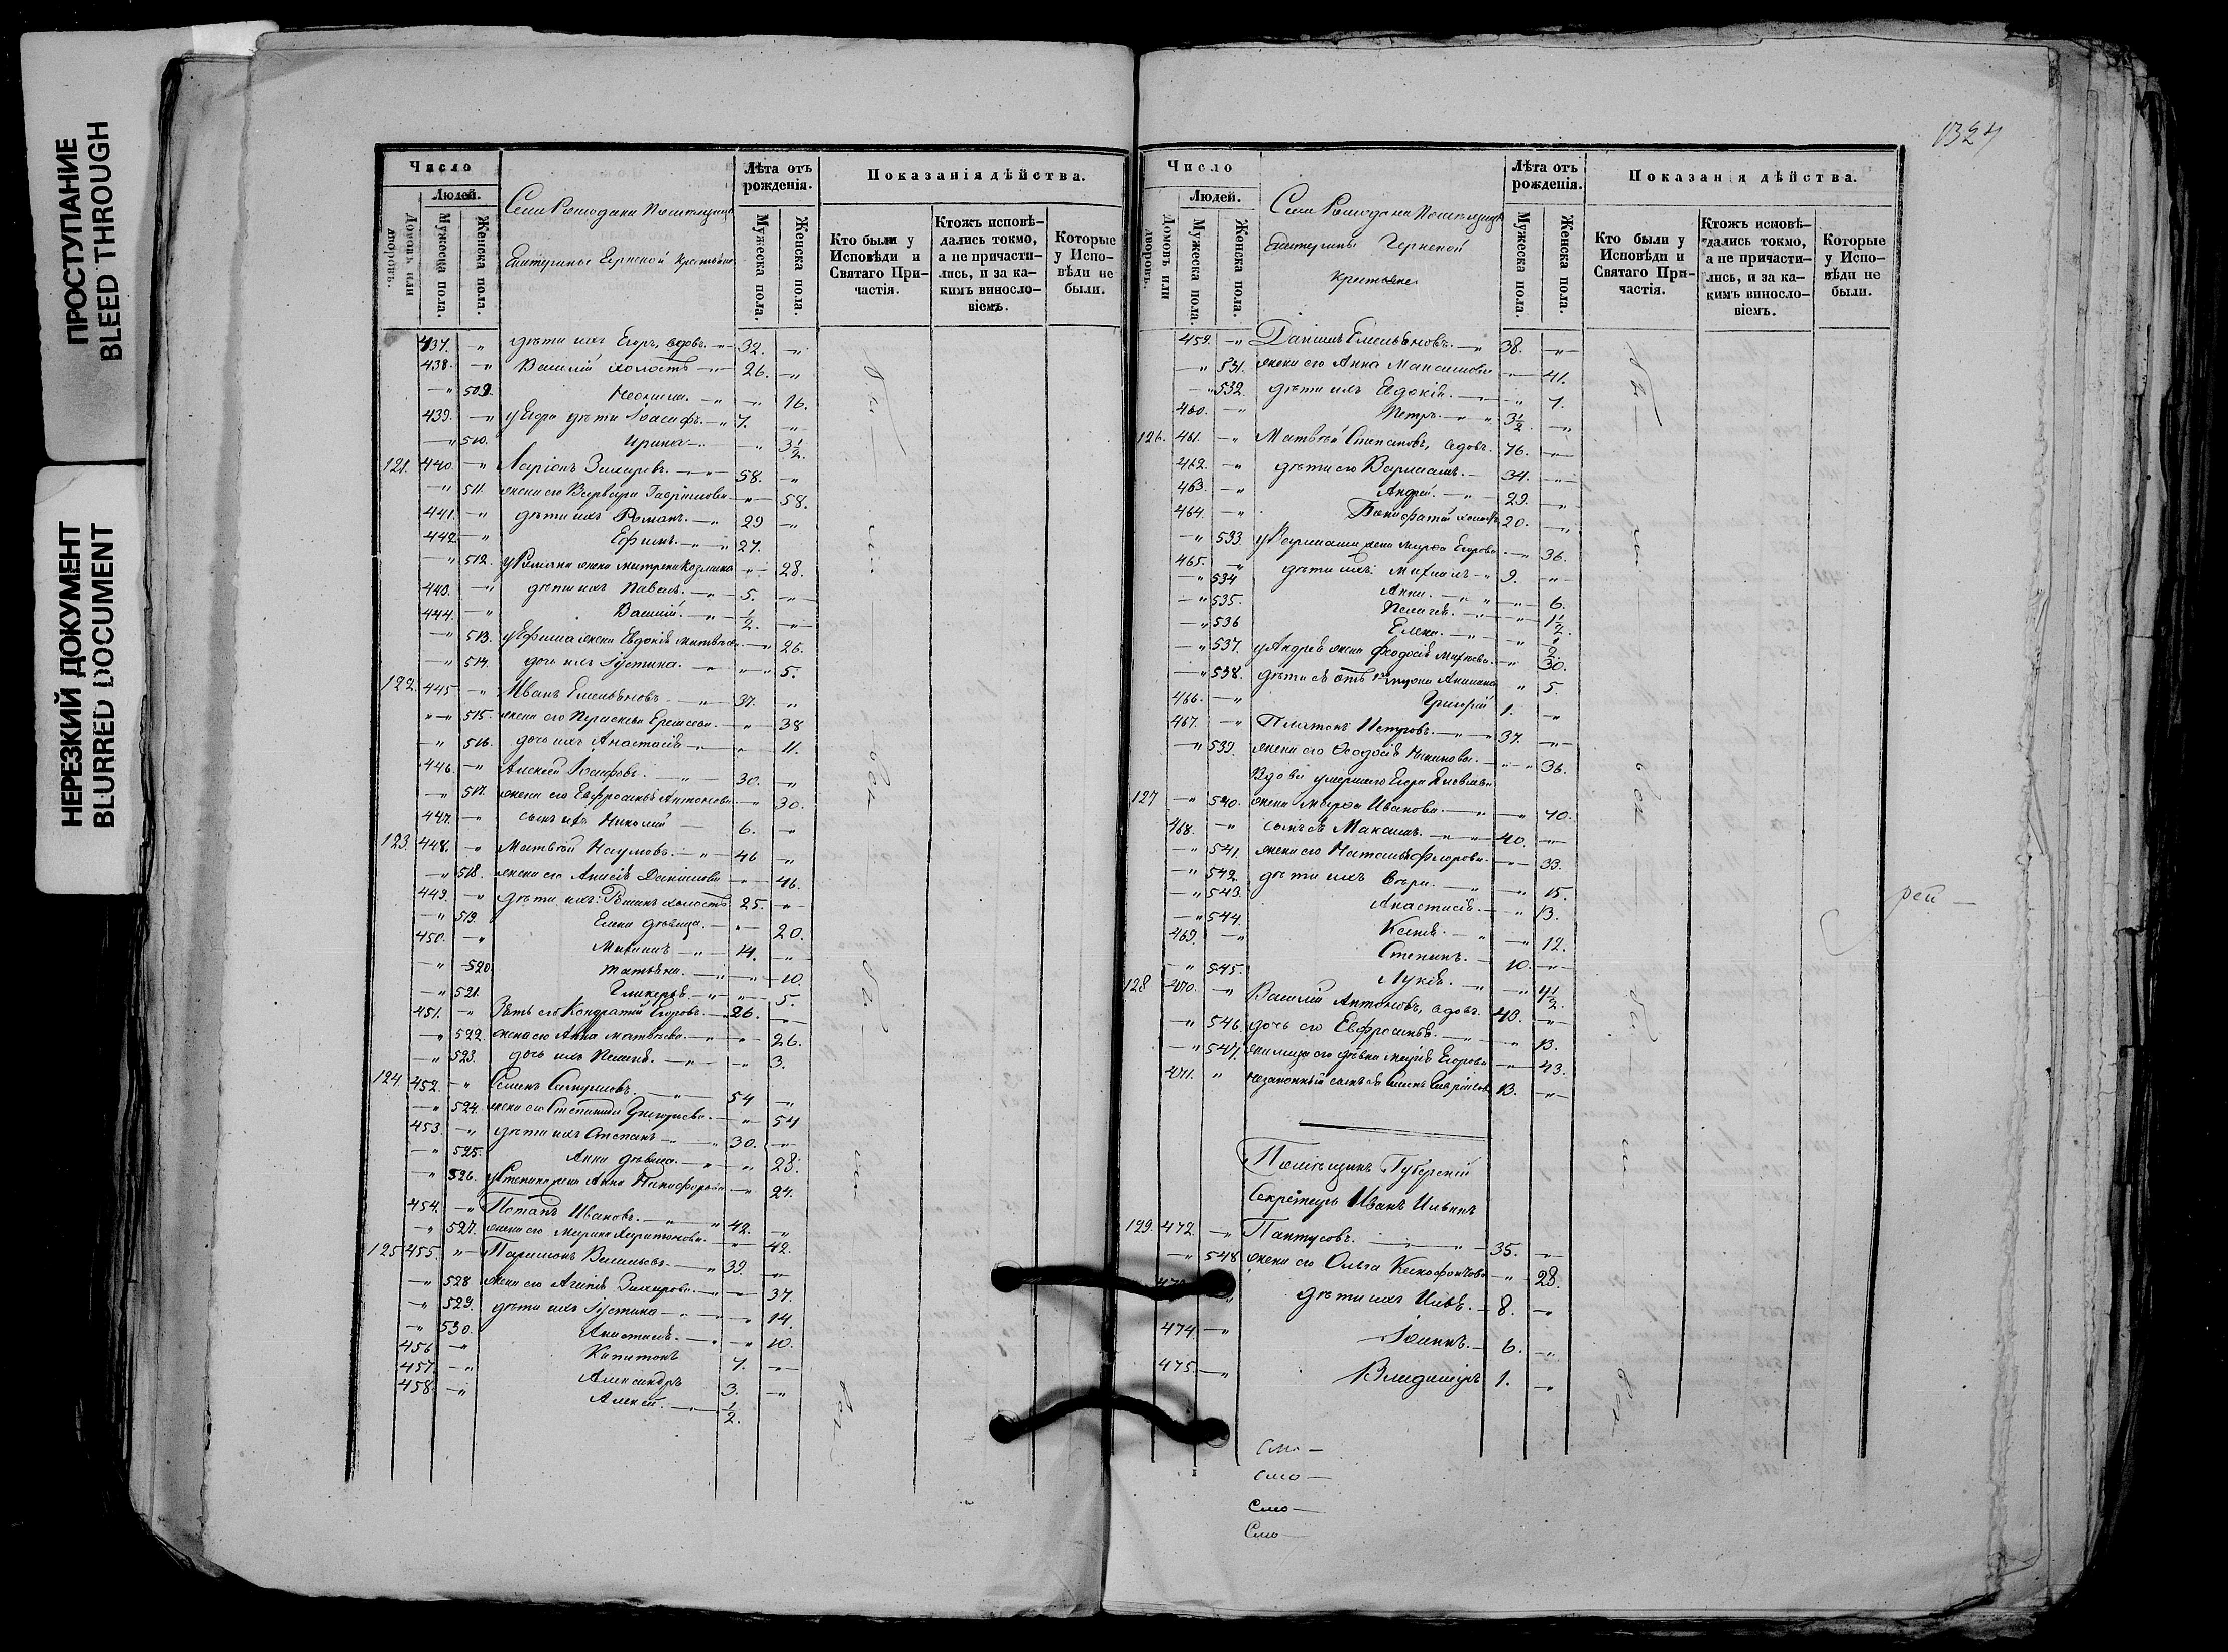 ПРОСТУПАНИЕ
BLEED THROUGH
НЕРЕЗКИЙ ДОКУМЕНТ
BLURRED DOCUMENT
Число
Людей.
Домовъ или дворовъ.
Мужеска пола.
Женска пола.
Села Ромодана Помѣщицы
Екатерины Черненой крестьяне
Лѣта отъ рожденія.
Мужеска пола.
Женска пола.
Показанія дѣйства.
Кто были у Исповѣди и Святаго Причастія.
Ктожъ исповѣдались токмо, а не причастились, и за какимъ винословіемъ.
Которые у Исповѣди не были.
437. —„ дѣти ихъ Егоръ, вдовъ. —„ 32. —„
438. —„ Василій холостъ —„— 26. —„
—„ 509. —„ —„ 16.
439. —„ у Егора дѣти Іоасафъ. —„ 7. —„
—„ 510. Ирина —„ —„ 3½
121. 440. —„ Ларіонъ Захаровъ. —„— 58. —„
—„ 511. жена его Варвара Гавріилова —„— 58.
441. —„ дѣти ихъ Романъ. —„ 29 —„
442. —„ Ефимъ. —„—„ 27.
—„ 512. у Романа жена Матрена Козмина —„— 28.
443. —„ дѣти ихъ Павелъ. —„ 5. —„—
444. —„ Василій. —„ ½. —„
—„ 513. у Ефима жена Евдокія Матвѣева —„ 26.
—„ 514. дочь ихъ Іустина. —„ —„ 5.
122. 445 —„ Иванъ Емельяновъ —„— 37. „
„—„ 515. жена его Параскева —„ 38
„ 516. дочь ихъ Анастасія —„ „ 11.
446. —„ Алексѣй Іосифовъ. —„— 30. —„
—„ 517. жена его Евфросинія Антонова —„ 30.
447. —„ сынъ ихъ Николай — 6. —„
123. 448. —„ Матвѣй Наумовъ. —„— 46 —„
—„ 518. жена его Анисія Данилова —„— 46.
449. —„ дѣти ихъ: холостъ 25. „—
—„ 519. Елена дѣвица. —„— 20.
450. —„ Михаилъ —„— 14. —„
—„ 520. Татьяна. —„ —„— 10.
—„ 521. Гликерія. —„ —„— 5.
451. —„ Зять его Кондратій Егоровъ. — 26. —„
—„ 522. жена его Анна Матвѣева. —„ —„ 26.
—„ 523. дочь ихъ —„ —„ 3.
124. 452. —„ Семенъ Самуиловъ. —„— 54 —„
—„ 524. жена его Степанида Григорьева. —„ 54
453. —„ дѣти ихъ Степанъ —„—„ 30. —„
—„ 525. Анна дѣвица. —„ —„ 28.
—„ 526. у Степана жена Анна Никифорова —„ 24.
454. —„ Потапъ Ивановъ. —„—„ 42. —„
—„ 527. жена его Марина Харитонова. —„— 42.
125 455. „— Парамонъ Васильевъ. —„ 39. —„
—„ 528 жена его Агапія Захарова. —„ —„ 37.
—„ 529. дѣти ихъ Іустина —„—„ 14.
—„ 530. Анастасія. —„ —„ 10.
456 —„ Капитонъ 7. —„—
457. —„ Александръ 3. —„
458. —„ Алексѣй. —„— ½.
бы—
ли
вси
бы—
ли
вси
1324
Число
Людей.
Домовъ или дворовъ.
Мужеска пола.
Женска пола.
Села Ромодана Помѣщицы
Екатерины Черненой
крестьяне
Лѣта отъ рожденія.
Мужеска пола.
Женска пола.
Показанія дѣйства.
Кто были у Исповѣди и Святаго Причастія.
Ктожъ исповѣдались токмо, а не причастились, и за какимъ винословіемъ.
Которые у Исповѣди не были.
459. —„ Даніилъ Емельяновъ. —„ 38. —„
—„ 531. жена его Анна Максимова —„— 41.
—„ 532. дѣти ихъ Евдокія. —„ 7.
460. —„ Петръ. —„—„ 3½. —„
126. 461. —„ Матвѣй Степановъ, вдовъ. 76. —„
462. —„ дѣти его Варлаамъ. — 34. —„
463. —„ Андрей. —„— 29. —„
464. —„ Вонифатій холостъ 20. —„
—„ 533. у Варлаама жена Марфа Егорова. —„ 36.
465. —„ дѣти ихъ: Михаилъ —„ 9. —„
—„ 534 Анна. —„ —„— 6.
—„ 535. Пелагія. —„ —„— 1½.
—„ 536 Елена. —„— „ ½.
—„ 537. у Андрея жена Феодосія Михеева. —„ 30.
—„ 538. дѣти ея отъ 1го мужа Акилина „ 5.
466. —„ Григорій 1. —„
467. —„ Платонъ Петровъ. —„—„ 37. —„
—„ 539. жена его Феодосія —„—„ 36.
Вдова умершаго Егора Яковлева
127 —„ 540. жена Марфа Иванова. —„— 70.
468. —„ сынъ ея Максимъ. —„—„ 40. —„
—„ 541. жена его Наталія Флорова. —„— 33.
—„ 542. дѣти ихъ Вѣра. —„ —„ 15.
—„ 543. Анастасія. —„ 13.
—„ 544. Ксенія. —„ —„ 12.
469. —„ Степанъ. — 10. —„—
—„ 545. Лукія. —„ —„ 4½.
128 470. —„ Василій Антоновъ, вдовъ. 43. —„
—„ 546. дочь его Евфросинія. —„ —„ 13.
—„ 547. жилица его дѣвка Марія Егорова —„ 43.
471. „ незаконный сынъ ея 13. —„
Помѣщикъ Губернскій
Секретарь Иванъ Ильинъ
129. 472. —„ Пантусовъ. —„— 35. —„
—„ 548 жена его Ольга Ксенофонтова —„ 28.
473 —„ дѣти ихъ Илья. — 8. —„
474. —„ Іоаннъ. — 6. —„
475. —„ Владиміръ 1. —„
бы—
ли
вси
бы—
ли
вси
рей —
Смо —
Смо —
Смо —
Смо —